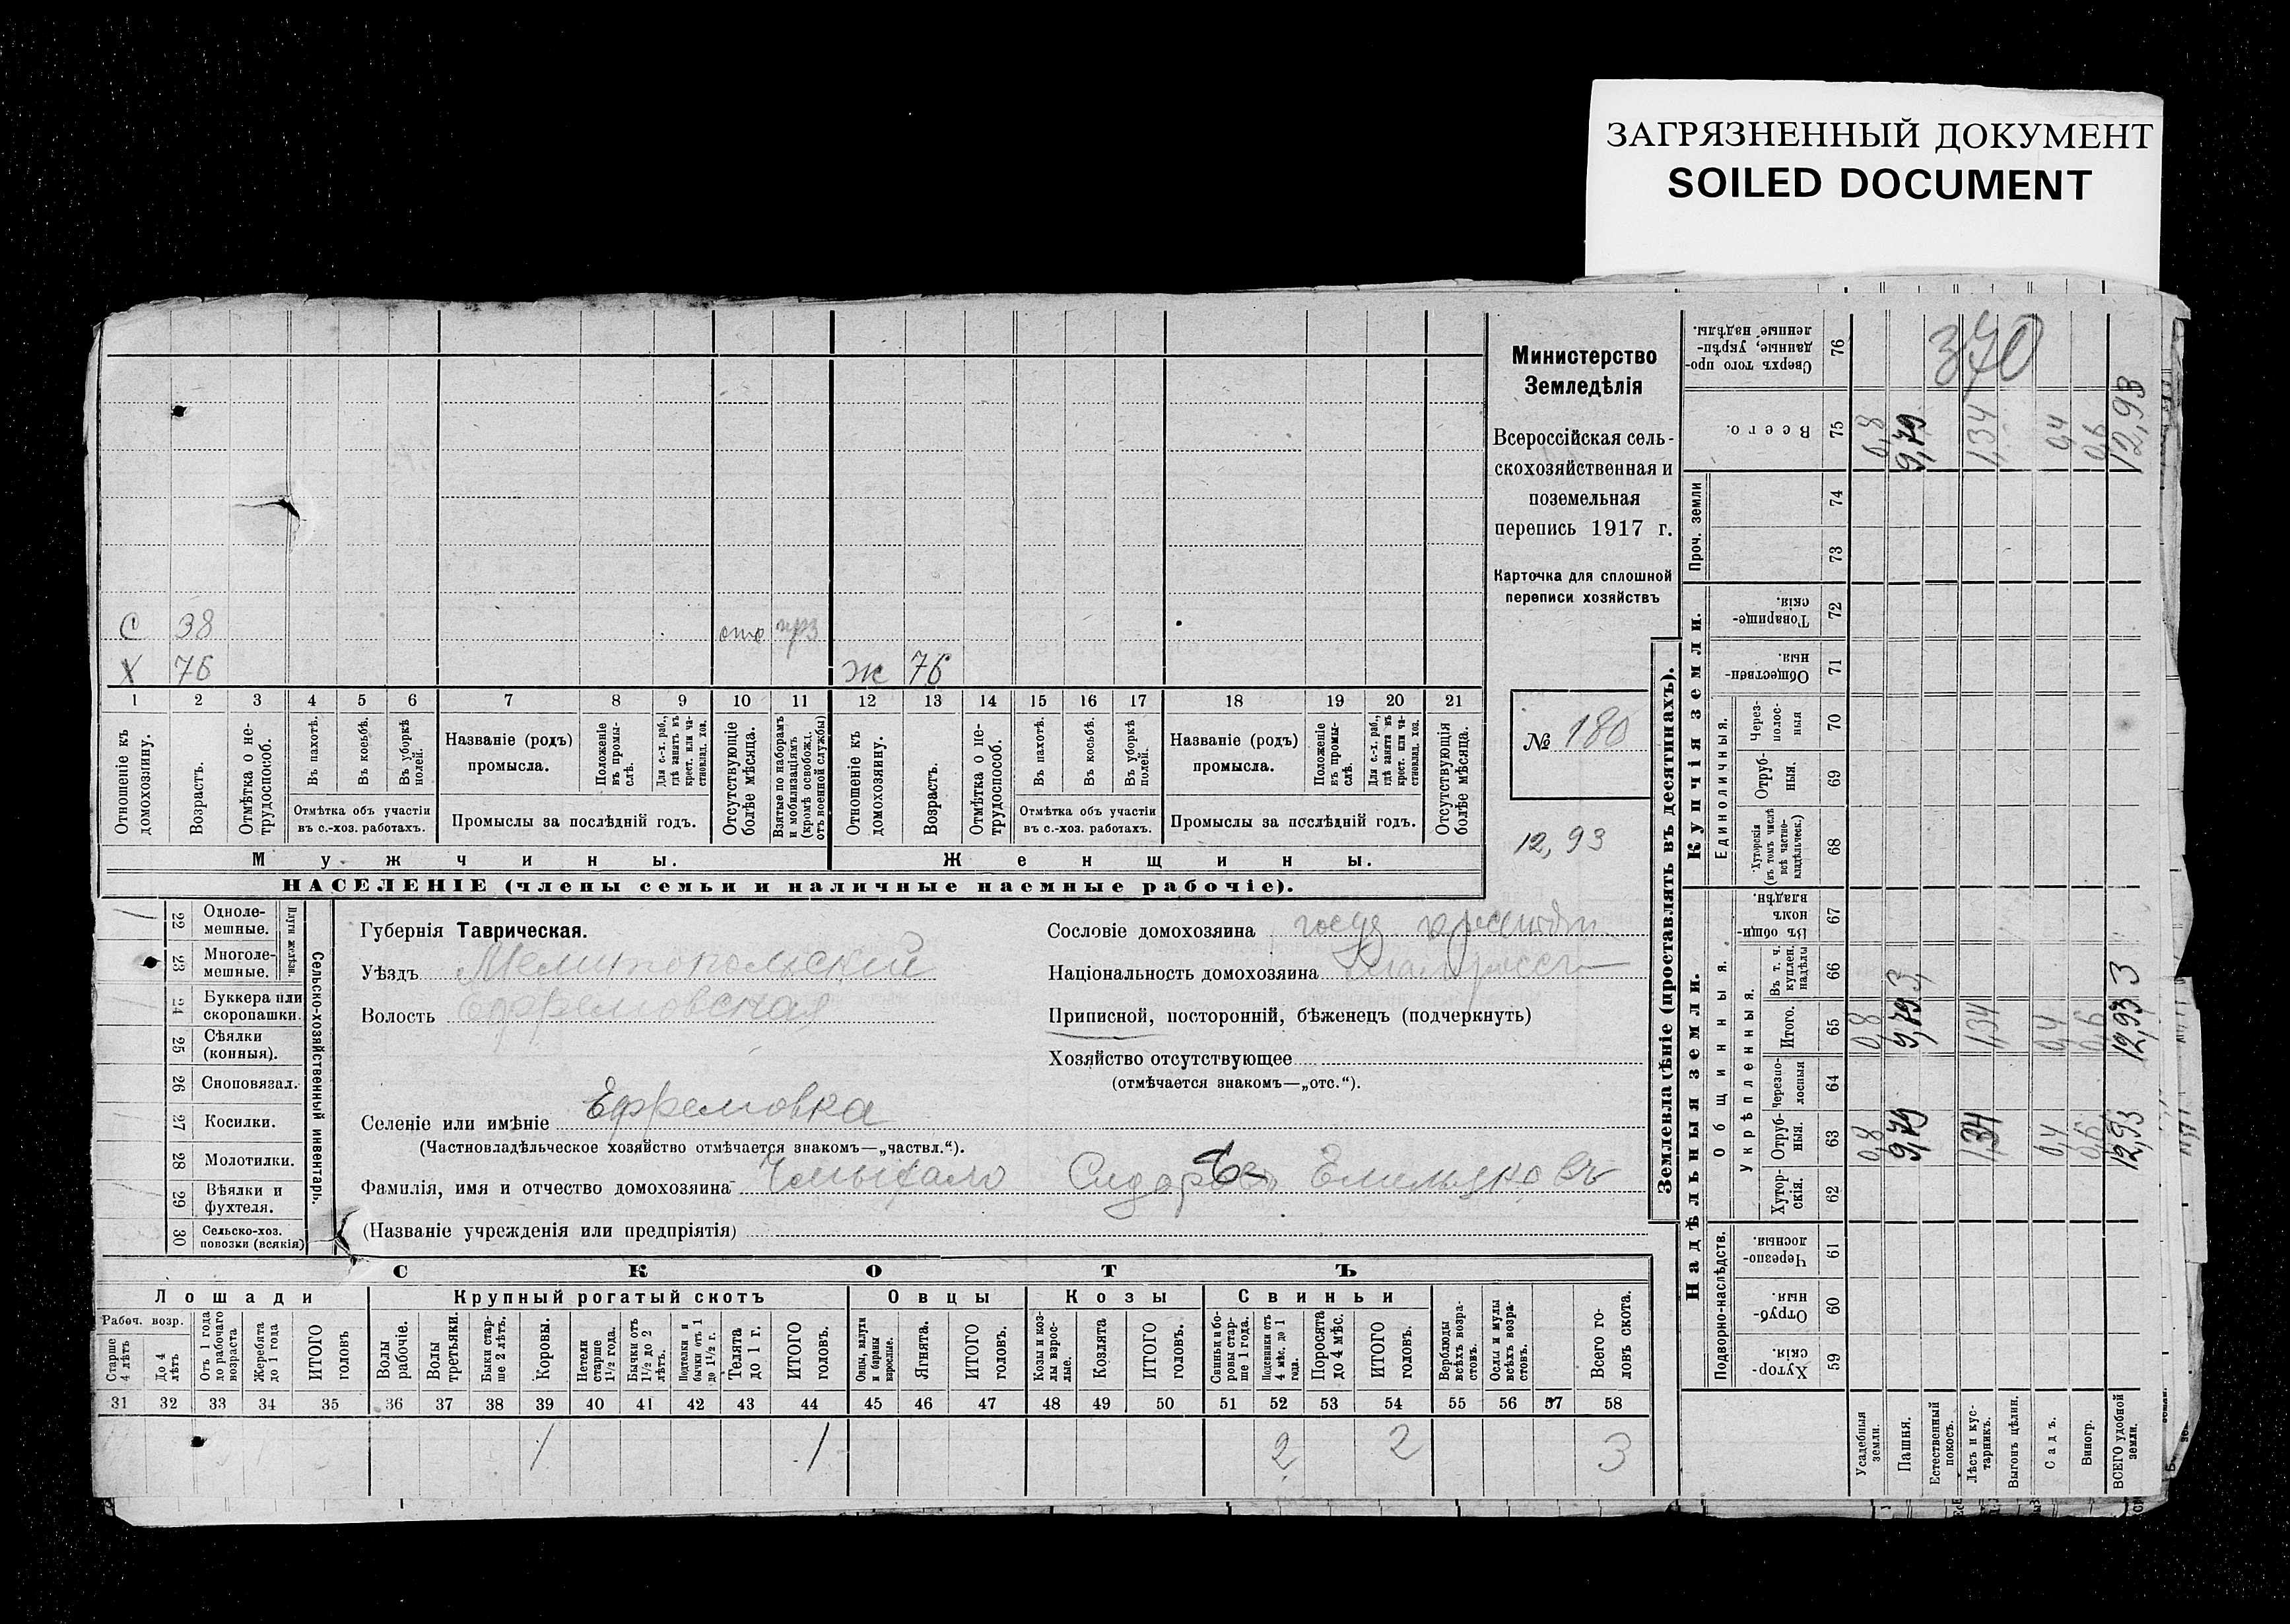 ЗАГРЯЗНЕННЫЙ ДОКУМЕНТ
SOILED DOCUMENT
Министерство
Земледѣлія
Всероссійская сель-
скохозяйственная и
поземельная
перепись 1917 г.
Карточка для сплошной
переписи хозяйствъ
№ 180
12,93
С 38 отс
Х 76 ж 76
1 2 3 4 5 6 7 8 9 10 11 12 13 14 15 16 17 18 19 20 21
Отношеніе къ домохозяину.
Возрастъ.
Отмѣтка о не-трудоспособ.
Въ пахотѣ.
Въ косьбѣ.
Въ уборкѣ полей.
Отмѣтка объ участіи
въ с.-хоз. работахъ.
Названіе (родъ)
промысла.
Положеніе въ промы-слѣ.
Для с.-х. раб., гдѣ занятъ въ крест. или ча-стновлад. хоз.
Промыслы за послѣдній годъ.
Отсутствующіе болѣе мѣсяца.
Взятые по наборамъ и мобилизаціямъ (кромѣ освобожд. отъ военной службы)
Отношеніе къ домохозяину.
Возрастъ.
Отмѣтка о не-трудоспособ.
Въ пахотѣ.
Въ косьбѣ.
Въ уборкѣ полей.
Отмѣтка объ участіи
въ с.-хоз. работахъ.
Названіе (родъ)
промысла.
Положеніе въ промы-слѣ.
Для с.-х. раб., гдѣ занята въ крест. или ча-стновлад. хоз.
Промыслы за послѣдній годъ.
Отсутствующія болѣе мѣсяца.
Мужчины.
Женщины.
НАСЕЛЕНІЕ (члены семьи и наличные наемные рабочіе).
Сельско-хозяйственный инвентарь.
Плуги желѣзн.
22 Одноле-мешные.
23 Многоле-мешные.
24 Буккера или скоропашки.
25 Сѣялки (конныя).
26 Сноповязал.
27 Косилки.
28 Молотилки.
29 Вѣялки и фухтеля.
30 Сельско-хоз. повозки (всякія)
Губернія Таврическая.
Уѣздъ Мелитопольскій
Волость Ефремовская
Селеніе или имѣніе Ефремовка
(Частновладѣльческое хозяйство отмѣчается знакомъ—„частвл.“).
Сословіе домохозяина
Національность домохозяина
Приписной, посторонній, бѣженецъ (подчеркнуть)
Хозяйство отсутствующее
(отмѣчается знакомъ—„отс.“).
Фамилія, имя и отчество домохозяина
(Названіе учрежденія или предпріятія)
СКОТЪ
Лошади
Крупный рогатый скотъ
Овцы
Козы
Свиньи
Рабоч. возр.
Старше 4 лѣтъ
До 4 лѣтъ
Отъ 1 года до рабочаго возраста
Жеребята до 1 года
ИТОГО головъ
Волы рабочіе.
Волы третьяки.
Быки стар-ше 2 лѣтъ.
Коровы.
Нетели старше 1½ года.
Бычки отъ 1½ до 2 лѣтъ.
Подтелки и бычки отъ 1 до 1½ г.
Телята до 1 г.
ИТОГО головъ.
Овцы, валухи и бараны взрослые.
Ягнята.
ИТОГО головъ.
Козы и коз-лы взрос-лые.
Козлята
ИТОГО головъ.
Свиньи и бо-ровы стар-ше 1 года.
Подсвинки отъ 4 мѣс. до 1 года.
Поросята до 4 мѣс.
ИТОГО головъ.
Верблюды всѣхъ возра-стовъ.
Ослы и мулы всѣхъ возра-стовъ.
Всего го-ловъ скота.
31 32 33 34 35 36 37 38 39 40 41 42 43 44 45 46 47 48 49 50 51 52 53 54 55 56 57 58
1 1 2 2 3
Землевладѣніе (проставлять въ десятинахъ).
Надѣльныя земли.
Купчія земли.
Подворно-наслѣдств.
Общинныя.
Укрѣпленныя.
Единоличныя.
Проч. земли
Хутор-скія. 59
Отруб-ныя. 60
Черезпо-лосныя. 61
Хутор-скія. 62
Отруб-ныя. 63
Черезпо-лосныя 64
Итого. 65
Въ т. ч. куплен. надѣлы 66
Въ общин-номъ владѣн. 67
Хуторскія (въ томъ числѣ всѣ частно-владѣльческ.) 68
Отруб-ныя. 69
Через-полос-ныя 70
Обществен-ныя. 71
Товарище-скія. 72
73
74
Всего. 75
Сверхъ того про-данные, укрѣп-ленные надѣлы. 76
370
Усадебныя земли. 0,8 0,8 0,8
Пашня. 9,79 9,79 9,79
Естественный покосъ.
Лѣсъ и кус-тарникъ. 1,34 1,34 1,34
Выгонъ цѣлин.
Садъ. 0,4 0,4 0,4
Виногр. 0,6 0,6 0,6
ВСЕГО удобной земли. 12,93 12,93 12,93